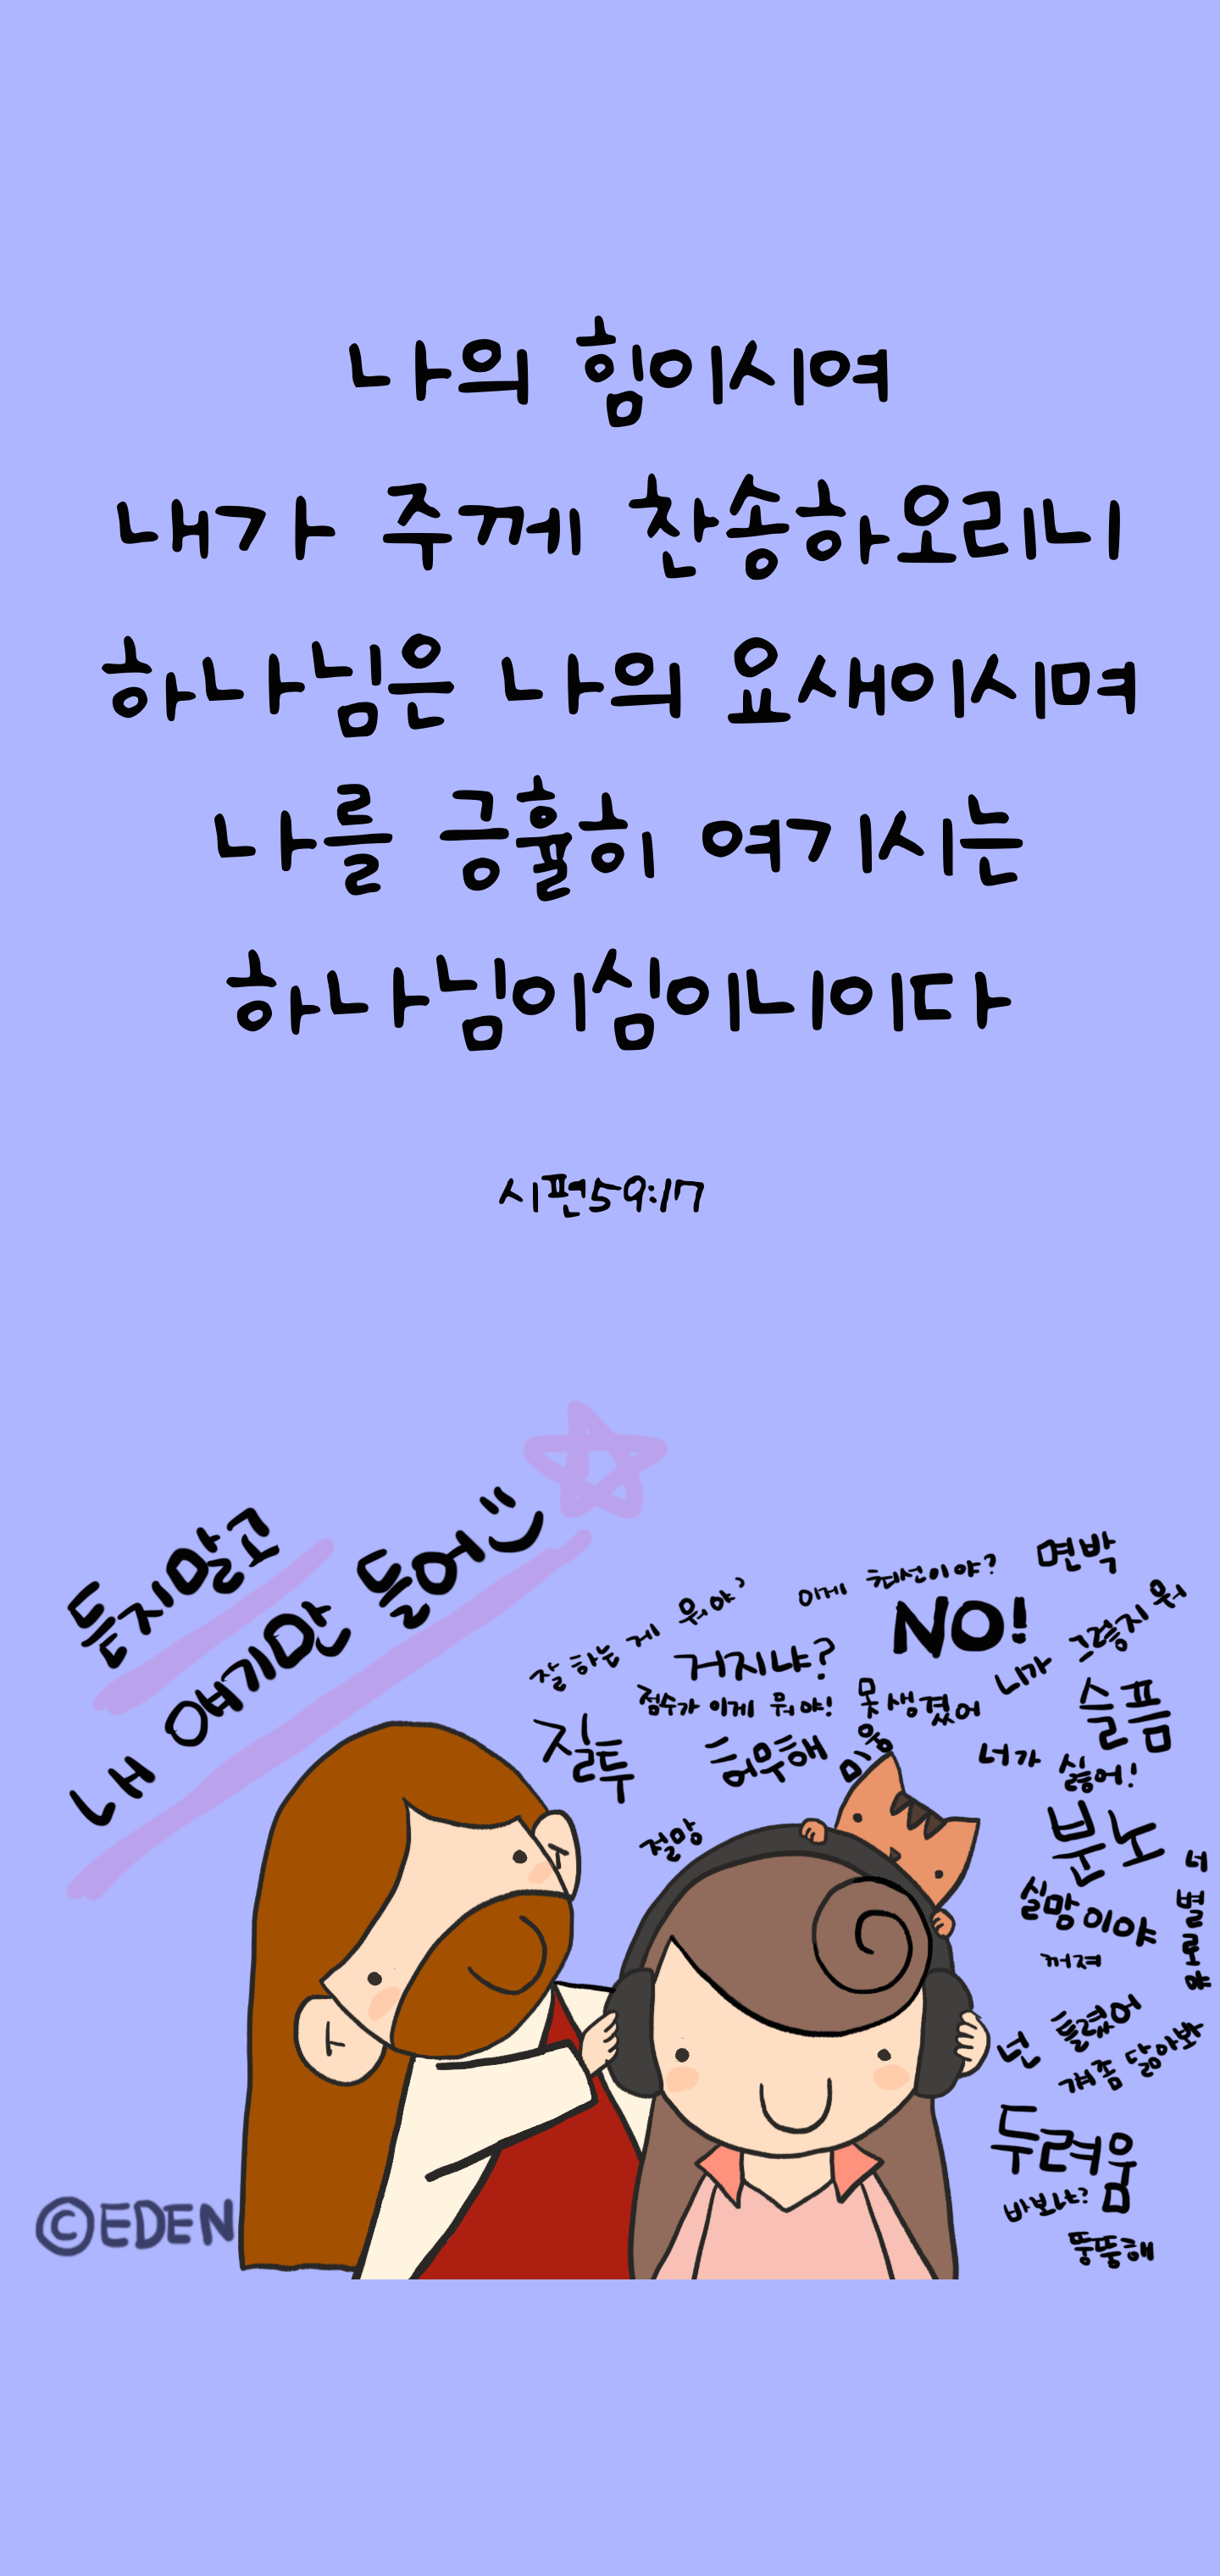 나의 힘이시여
내가 주께 찬송하오리니
하나님은 나의 요새이시며
나를 긍휼히 여기시는
하나님이심이니이다
시편59:17
듣지말고
내 얘기만 들어
잘하는 게 뭐야?
이게 최선이야?
면박
NO!
거지냐?
니가 그렇지 뭐
점수가 이게 뭐야!
못생겼어
슬픔
질투
허무해
미움
너가 싫어!
절망
분노
너 별로야
실망이야
꺼져
넌 틀렸어
걔좀 닮아봐
두려움
바보냐?
뚱뚱해
©EDEN